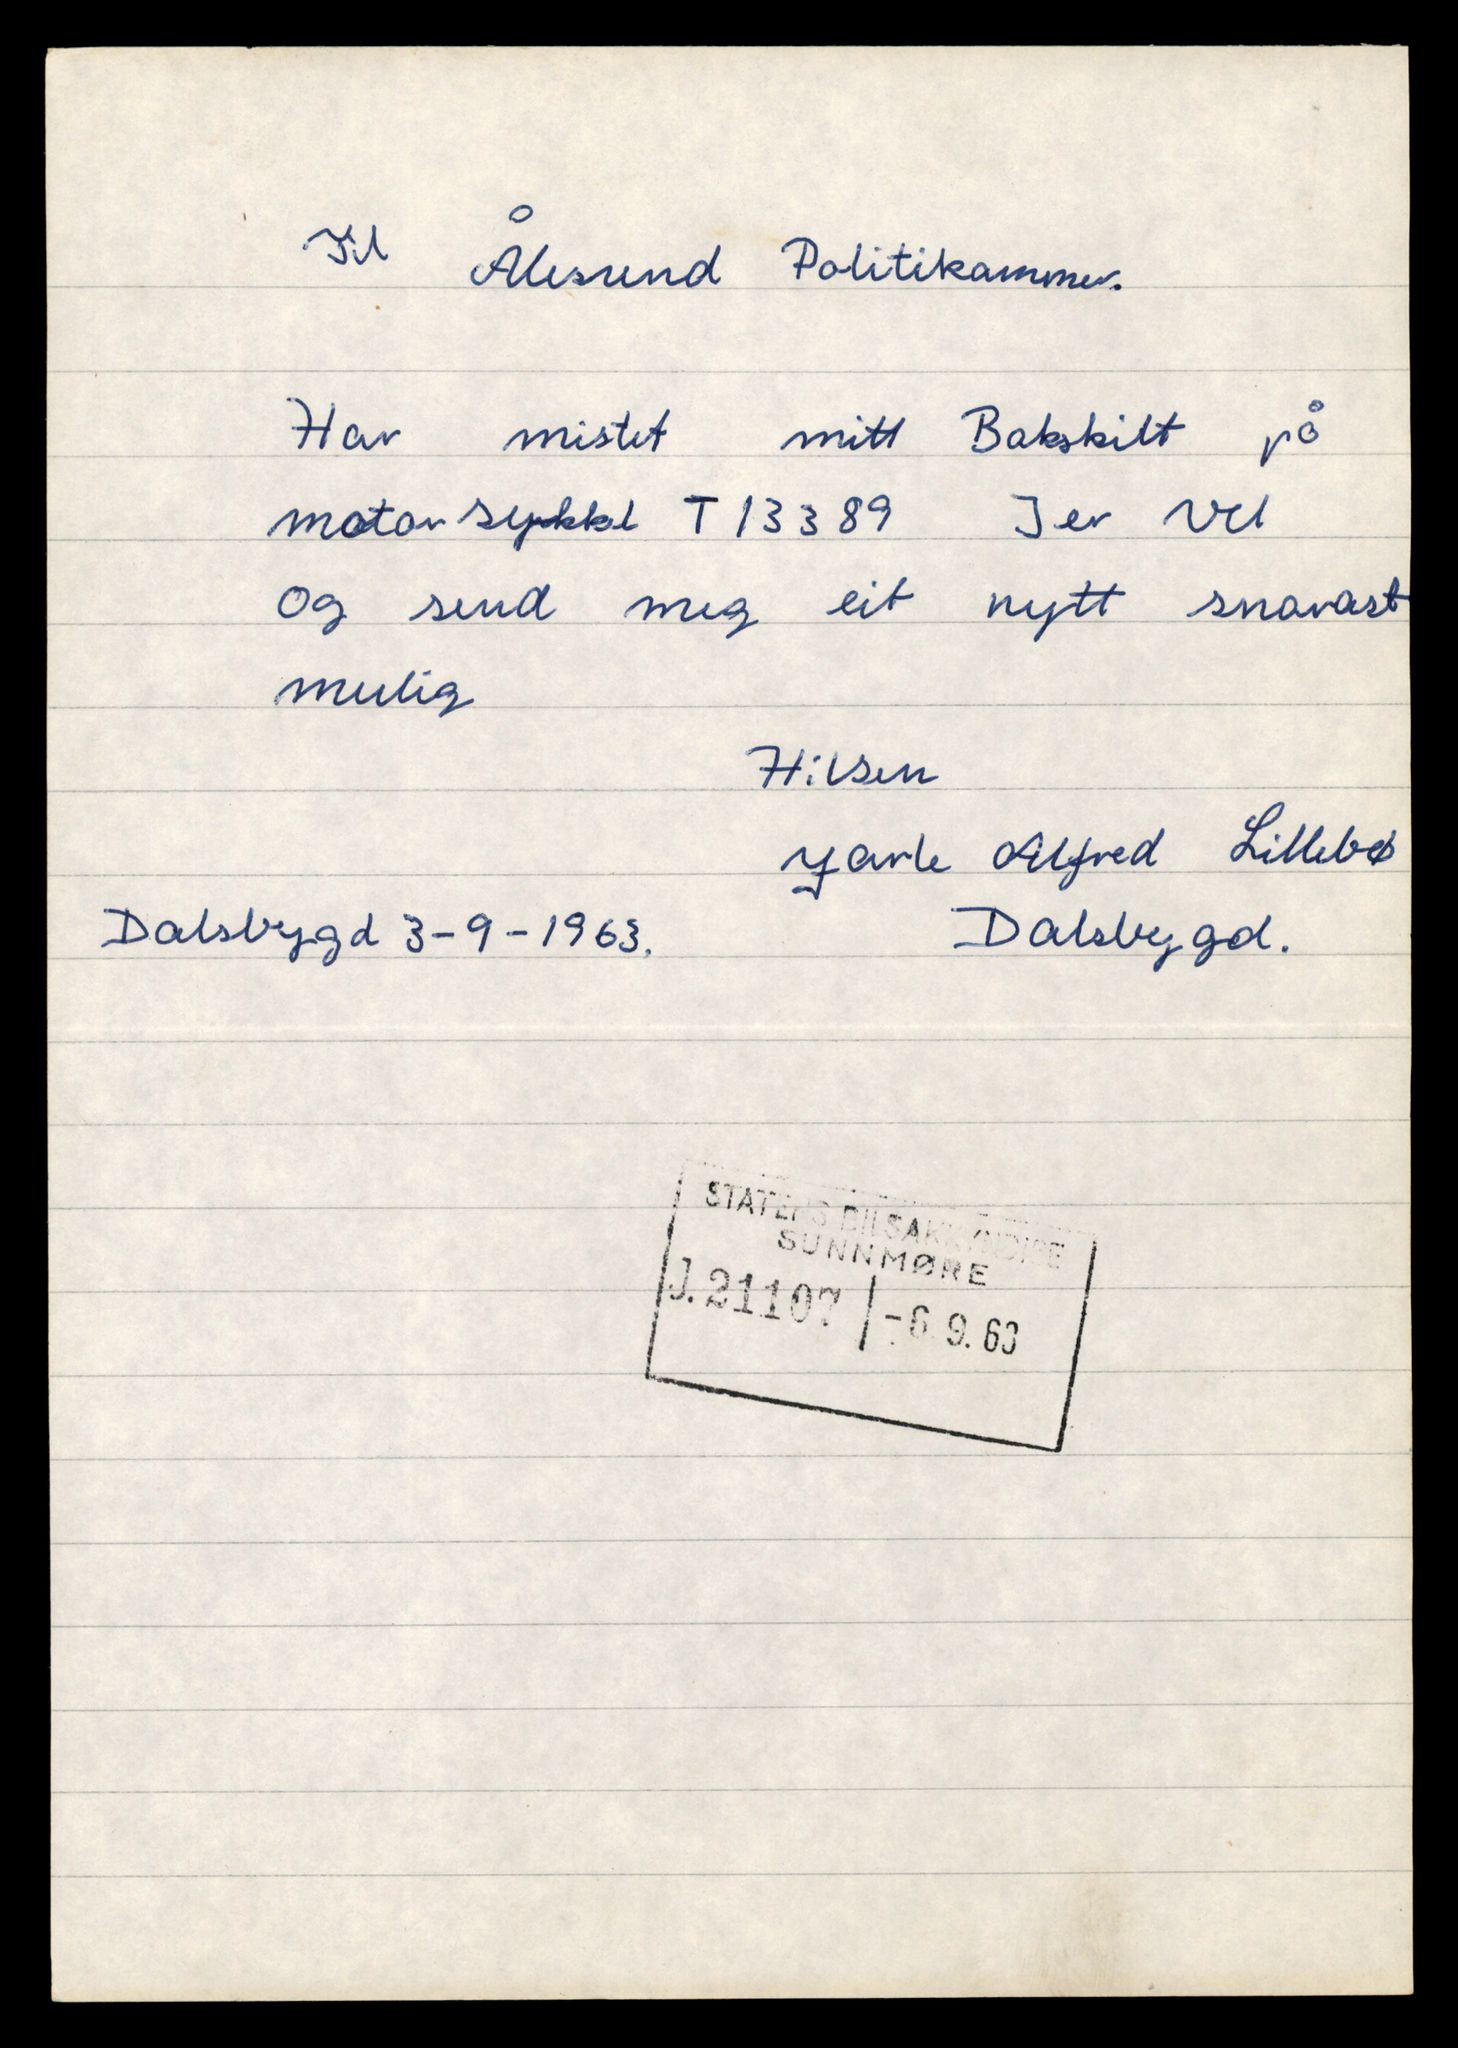 Til Ålesund Politikammer.
Har mistet mitt Bakskilt på
motorsykkel T 13389 Jer Vel
Og send meg eit nytt snarast
mulig
Hilsen
Jarle Alfred Lillebø
Dalsbygd 3-9-1963. Dalsbygd.
STATENS BILSAKKYNDIGE
SUNNMØRE
J. 21107 -6. 9. 63